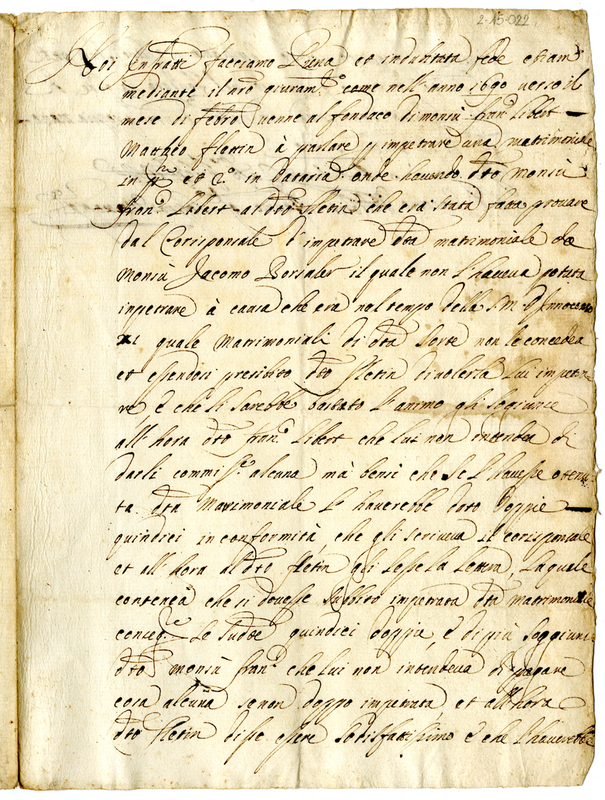 2-15-022
Noi Infratti facciamo piena et indubitata fede etiam
mediante il nro giuramto come nell'anno 1690 verso il
mese di febro venne al fondaco di monsù franco Libert
Mattheo fletin à parlare p impetrare una matrimoniale
in po et 2o in Dataria, onde havendo dto monsù
franco Libert al dto fletin che era stata fatta provare
dal Corisponsale d'impetrare dta matrimoniale da
Monsù Jacomo il quale non l'haveva potuta
impetrare à causa che era nel tempo della S.M. d'Innocenzo
XI quale Matrimoniali di dta sorte non le concedeva
et essendosi presibito dto fletin di volerla lui impetra
re e che li sarebbe bastato l'animo gli sogiunse
all'hora dto franco Libert che lui non intendeva di
darli commissne alcuna mà bensi che se l'havesse otenu
ta dta Matrimoniale l'haverebbe dato doppie
quindici in conformità, che gli scriveva il corisponsale
et all'hora al dto fletin gli lesse la lettera, la quale
conteneva che si dovesse subbito impetrata dta matrimoniale
le sudde quindici doppie, e di più soggiunse
dto monsù franco che lui non intendeva di pagare
cosa alcuna senon doppo impetrata et all'hora
dto fletin disse essere sodisfattissimo e che l'haverebbe